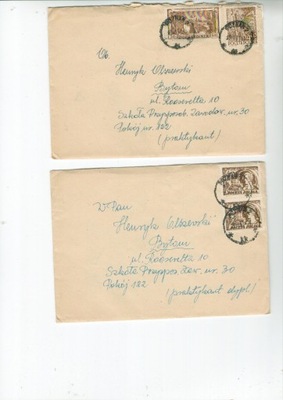 Ob.
Henryk Olszewski
Bytom
ul. Roosevelta 10
Szkoła Przyspos. Zawodow. nr. 30
Pokój nr. 122
(praktykant)
W Pan
Henryk Olszewski
Bytom
ul. Roosevelta 10
Szkoła Przyspos. Zaw. nr. 30
Pokój 122
(praktykant dypl.)